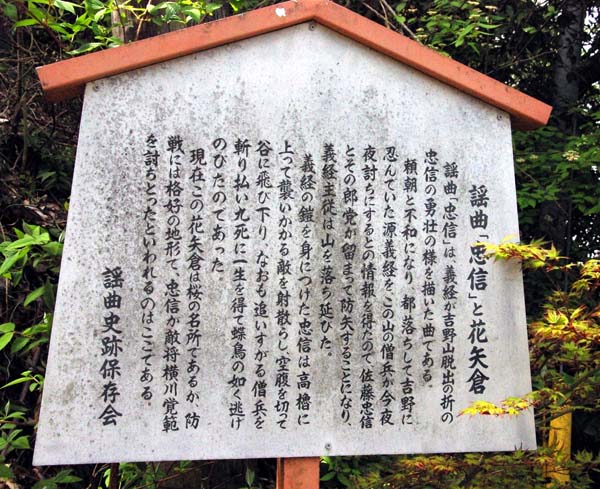 謡曲「忠信」と花矢倉
謡曲「忠信」は、義経が吉野山脱出の折の
忠信の勇壮の様を描いた曲である。
頼朝と不和になり、都落ちして吉野に
忍んでいた源義経を、この山の僧兵が今夜
夜討ちにするとの情報を得たので、佐藤忠信
とその郎党が留まって防矢することになり、
義経主従は山を落ち延びた。
義経の鎧を身につけた忠信は、高櫓に
上って襲いかかる敵を射散らし、空腹を切って
谷に飛び下り、なおも追いすがる僧兵を
斬り払い九死に一生を得て蝶鳥の如く逃げ
のびたのであった。
現在この花矢倉は桜の名所であるが、防
戦には格好の地形で、忠信が敵将横川覚範
を討ちとったといわれるのはここである。
謡曲史跡保存会